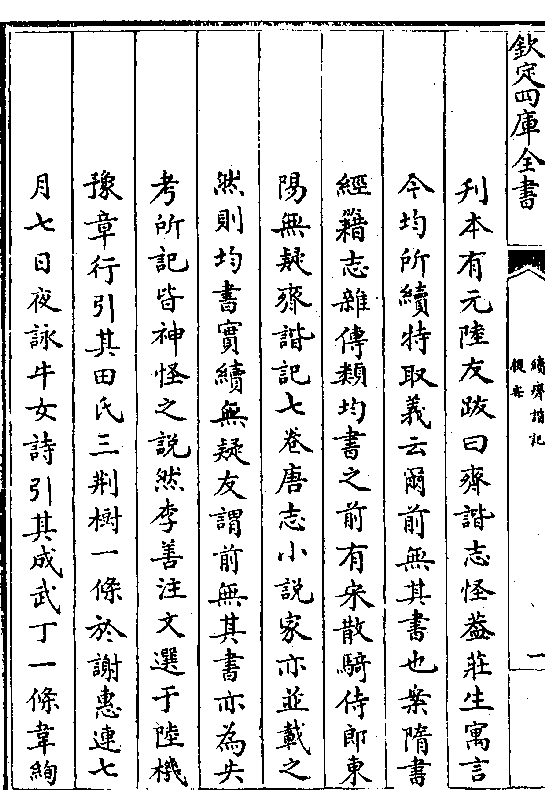 欽定四庫全書
續齊諧記
提要
一
刋本有元陸友跋曰齊諧志怪葢莊生寓言
今均所續特取義云爾前無其書也案隋書
經籍志雜傳類均書之前有宋散騎侍郎東
陽無疑齊諧記七卷唐志小說家亦並載之
然則均書實續無疑友謂前無其書亦為失
考所記皆神怪之說然李善注文選于陸機
豫章行引其田氏三荆樹一條於謝惠連七
月七日夜詠牛女詩引其成武丁一條韋絢